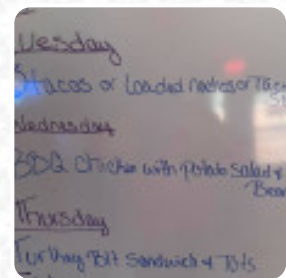 Tuesday
3 tacos or Loaded nachos or Taco
Wednesday
BBQ Chicken with Potato Salad &
Bean
Thursday
Turkey BLT Sandwich & Tots